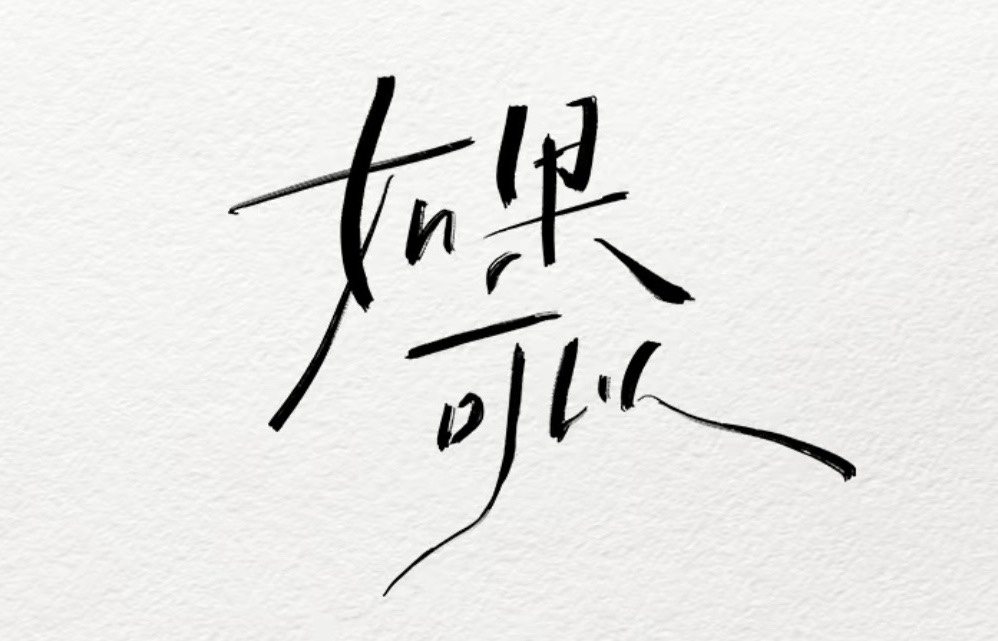 如果
可以